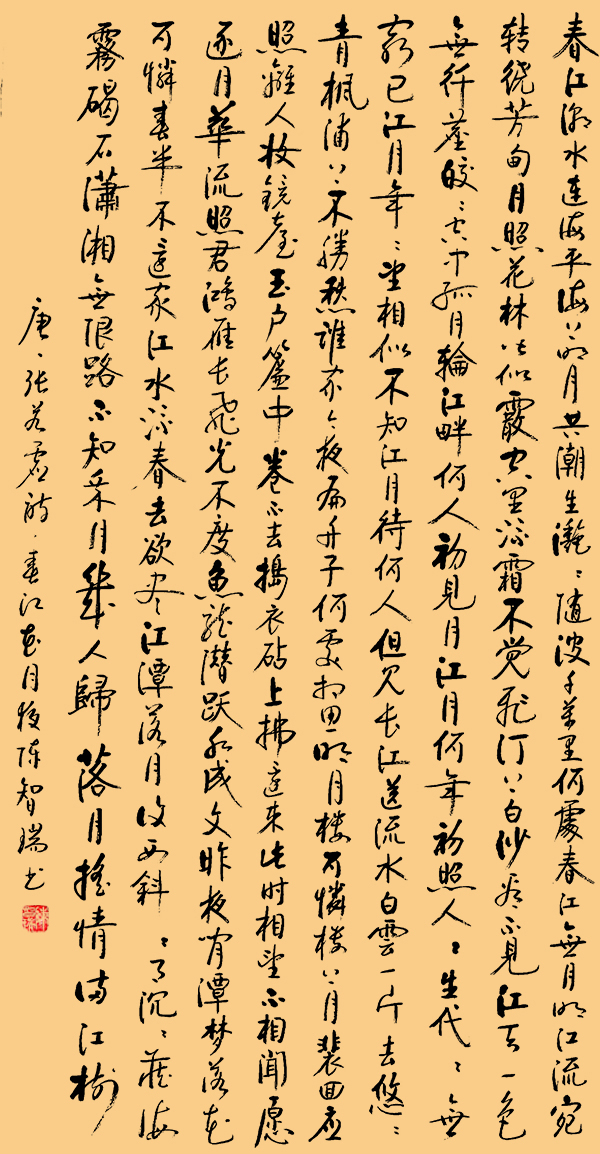 春江潮水連海平海上明月共潮生灧〻随波千萬里何處春江無月明江流宛
转绕芳甸月照花林皆似霰空里流霜不觉飛汀上白沙看不見江天一色
無纤塵皎〻空中孤月輪江畔何人初見月江月何年初照人〻生代〻無
窮已江月年〻望相似不知江月待何人但見長江送流水白雲一片去悠〻
青枫浦上不勝愁誰家今夜扁舟子何處相思明月楼可憐楼上月裴回应
照離人妆鏡臺玉户簾中卷不去搗衣砧上拂還来此时相望不相聞愿
逐月華流照君鴻雁长飛光不度魚龍潜跃水成文昨夜闲潭梦落花
可憐春半不還家江水流春去欲尽江潭落月復西斜〻月沉〻藏海
霧碣石瀟湘無限路不知乘月幾人歸落月摇情满江樹
唐、张若虚詩·春江花月夜陈智瑞书